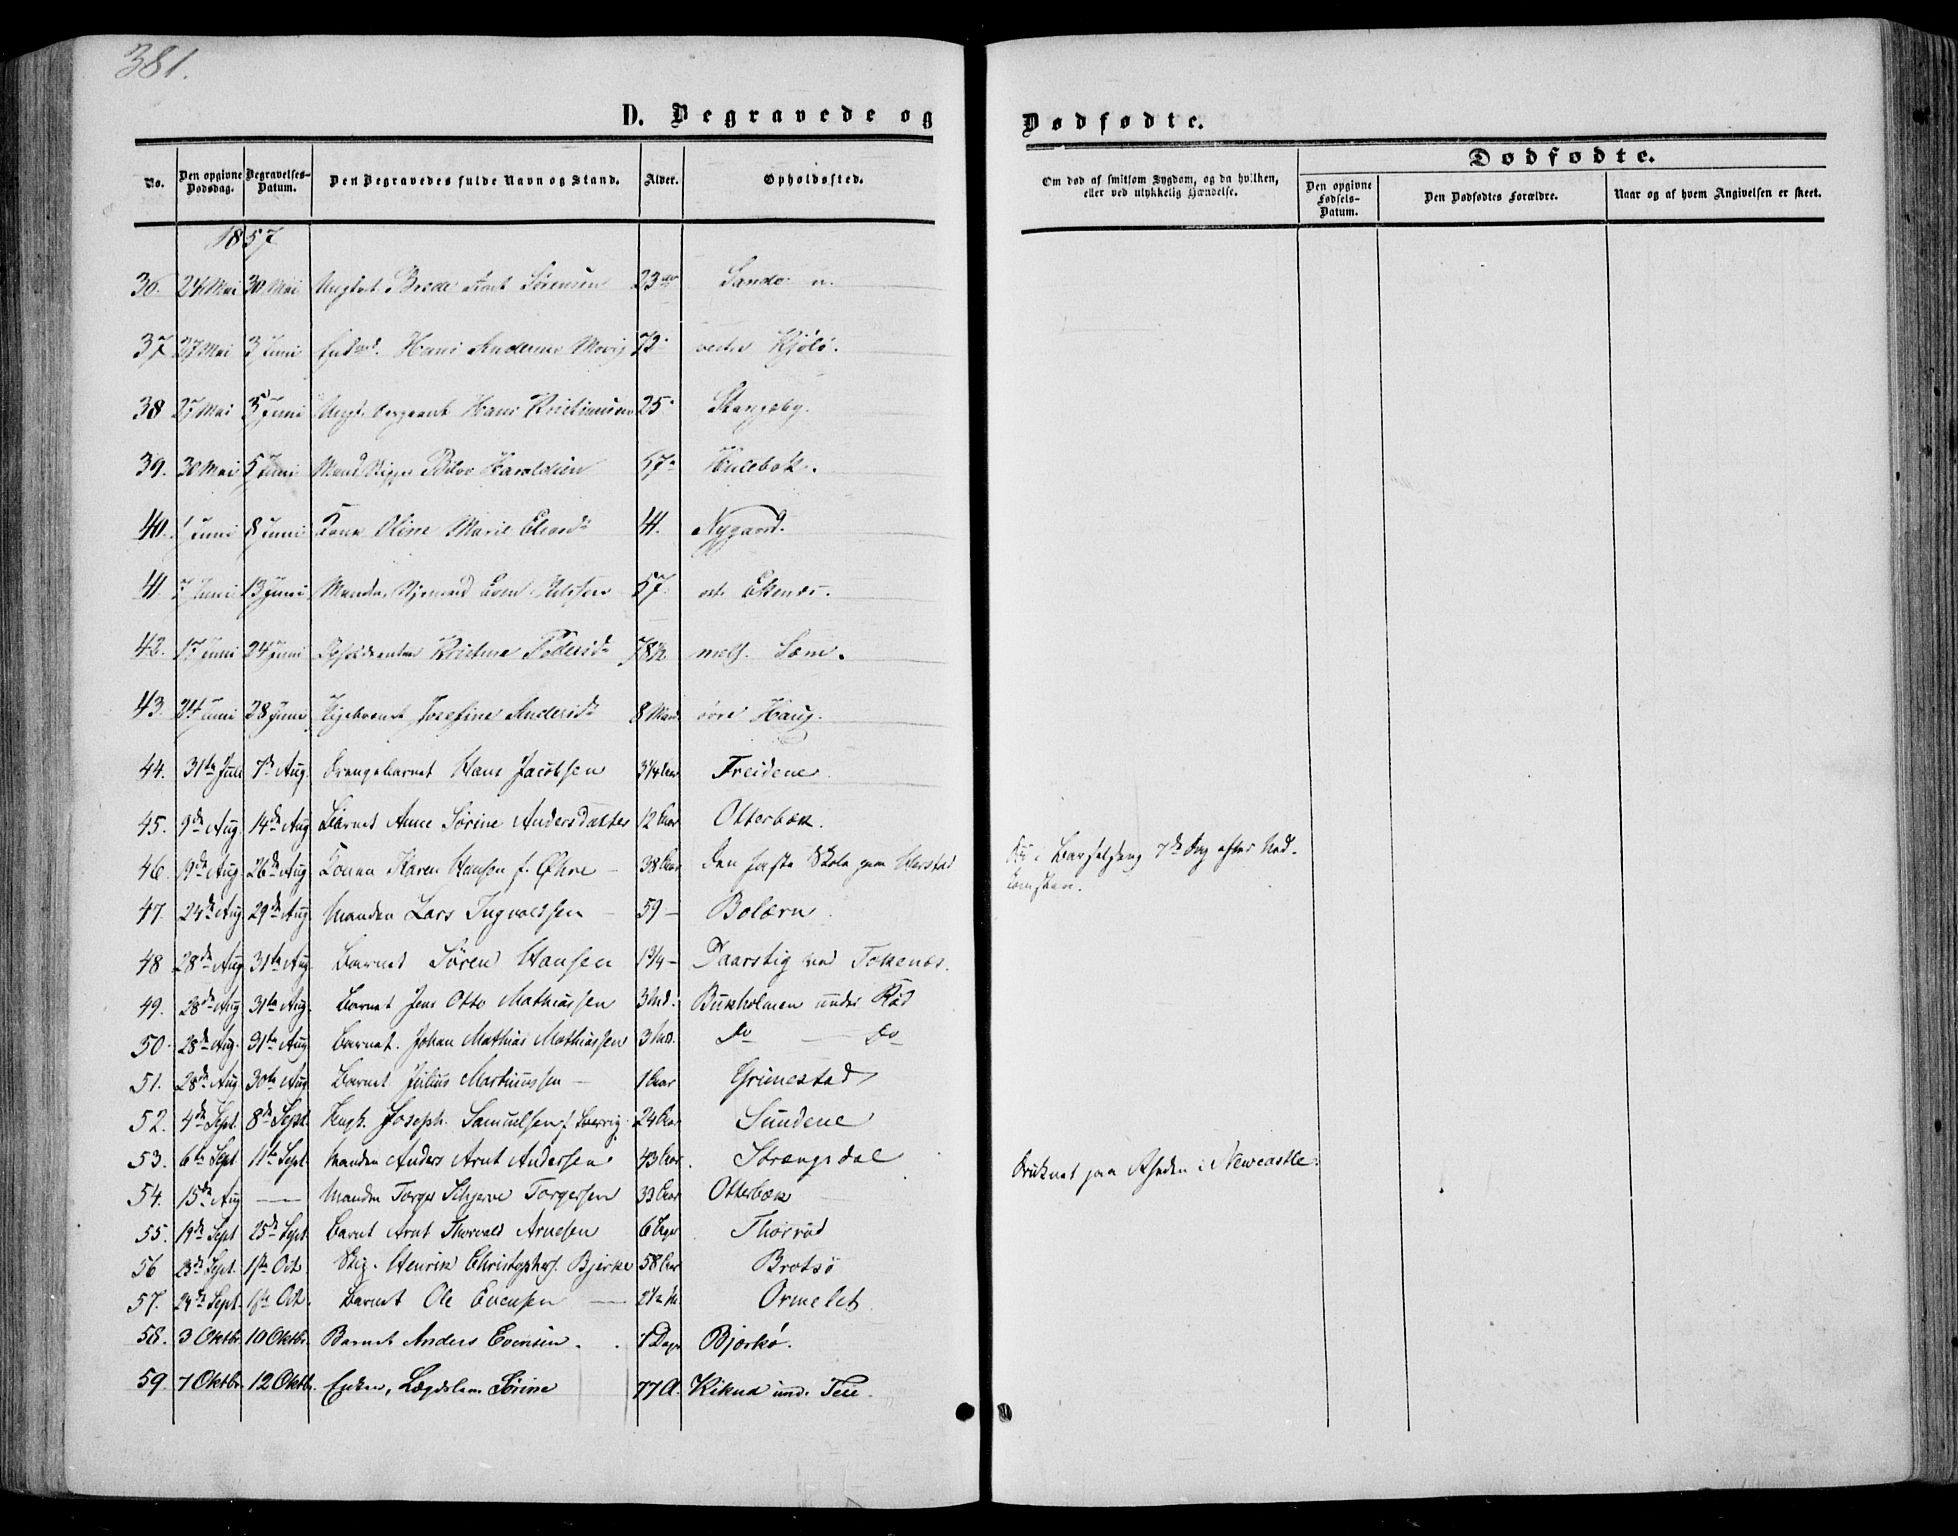 381.
D. Begravede og
Dødfødte.
No. Den opgivne Dødsdag. Begravelses-Datum. Den Begravedes fulde Navn og Stand. Alder. Opholdssted.
Om død af smitsom Sygdom, og da hvilken, eller ved ulykkelig Hændelse.
Dødfødte.
Den opgivne Fødsels-Datum. Den Dødfødtes Forældre. Naar og af hvem Angivelsen er skeet.
1857
36. 24 Mai 30 Mai Sørensen 23
37 27 Mai 3 Juni Hans Anderses 72 Kjølø.
38 27 Mai 5 Juni Sergeant Hans Kristiansen 25 Stangeby.
39. 30 Mai 5 Juni Haraldsen 57 Hulebak.
40. 1 Juni 8 Juni Kone Oline Marie 41. Nygaard.
41 7 Juni 13 Juni Manden Even 57. Ekenæs.
42. 17 Juni 24 Juni Kristine Pedersd. 78 1/2 mell. Sem.
43. 24 Juni 28 Juni Pigebarnet Josefine Andersd. 8 Maan. Haug.
44. 31te Juli 7de Aug. Drengebarnet Hans Jacobsen 3 1/4 Aar Freidene.
45. 9de Aug. 14de Aug Barnet Anne Sørine Andersdatter 12 Aar Otterbæk.
46. 19de Aug. 26de Aug Konen Karen Hansen f. Øhre 38 Aar den faste Skole paa
i Barselseng 7de Dag efter Ned-
komsten.
47. 24de Aug 29de Aug Manden Lars Ingvoldsen 59 – Bolærn.
48 28de Aug 31te Aug. Barnet Søren Hansen 1 3/4 – Paarstig ved Tokenæs.
49. 28de Aug 31te Aug. Barnet Jens Otto Mathiassen 3 Md. Bukholmen under Rød
50. 28de Aug. 31te Aug Barnet Johan Mathias Mathiassen 3 Md. Do — Do
51. 28de Aug 30te Aug Barnet Julius Martinussen – 1 Aar Grimestad
52. 4de Sept. 8de Sept. Ungk. Joseph Samuelsen f. 24 Aar Sundene
53. 6te Sept 11te Sept. Manden Anders Arnt Andersen 43 Aar. Strengsdal
54. 15de Aug — Manden Torger Schjerve Torgersen 33 Aar Otterbæk
Druknet paa Rheden i Newcastle.
55. 19de Sept 25de Sept Barnet Arnt Thorvald Arnesen 6 Dage Thorrød
56 23de Sept. 1ste Oct. Henrik Christophers. Bjerke 58 Aar Brotsø
57. 24de Sept. 1ste Oct. Barnet Ole Evensen — 2 1/2 M. Ormelet
58. 3 Oktbr. 10 Oktbr. Barnet Anders Evensen. Dage Bjørkø.
59. 7 Oktbr. 12 Oktbr. Enken, Lægdslem Sørine 77 A. Kikud und. Teie.